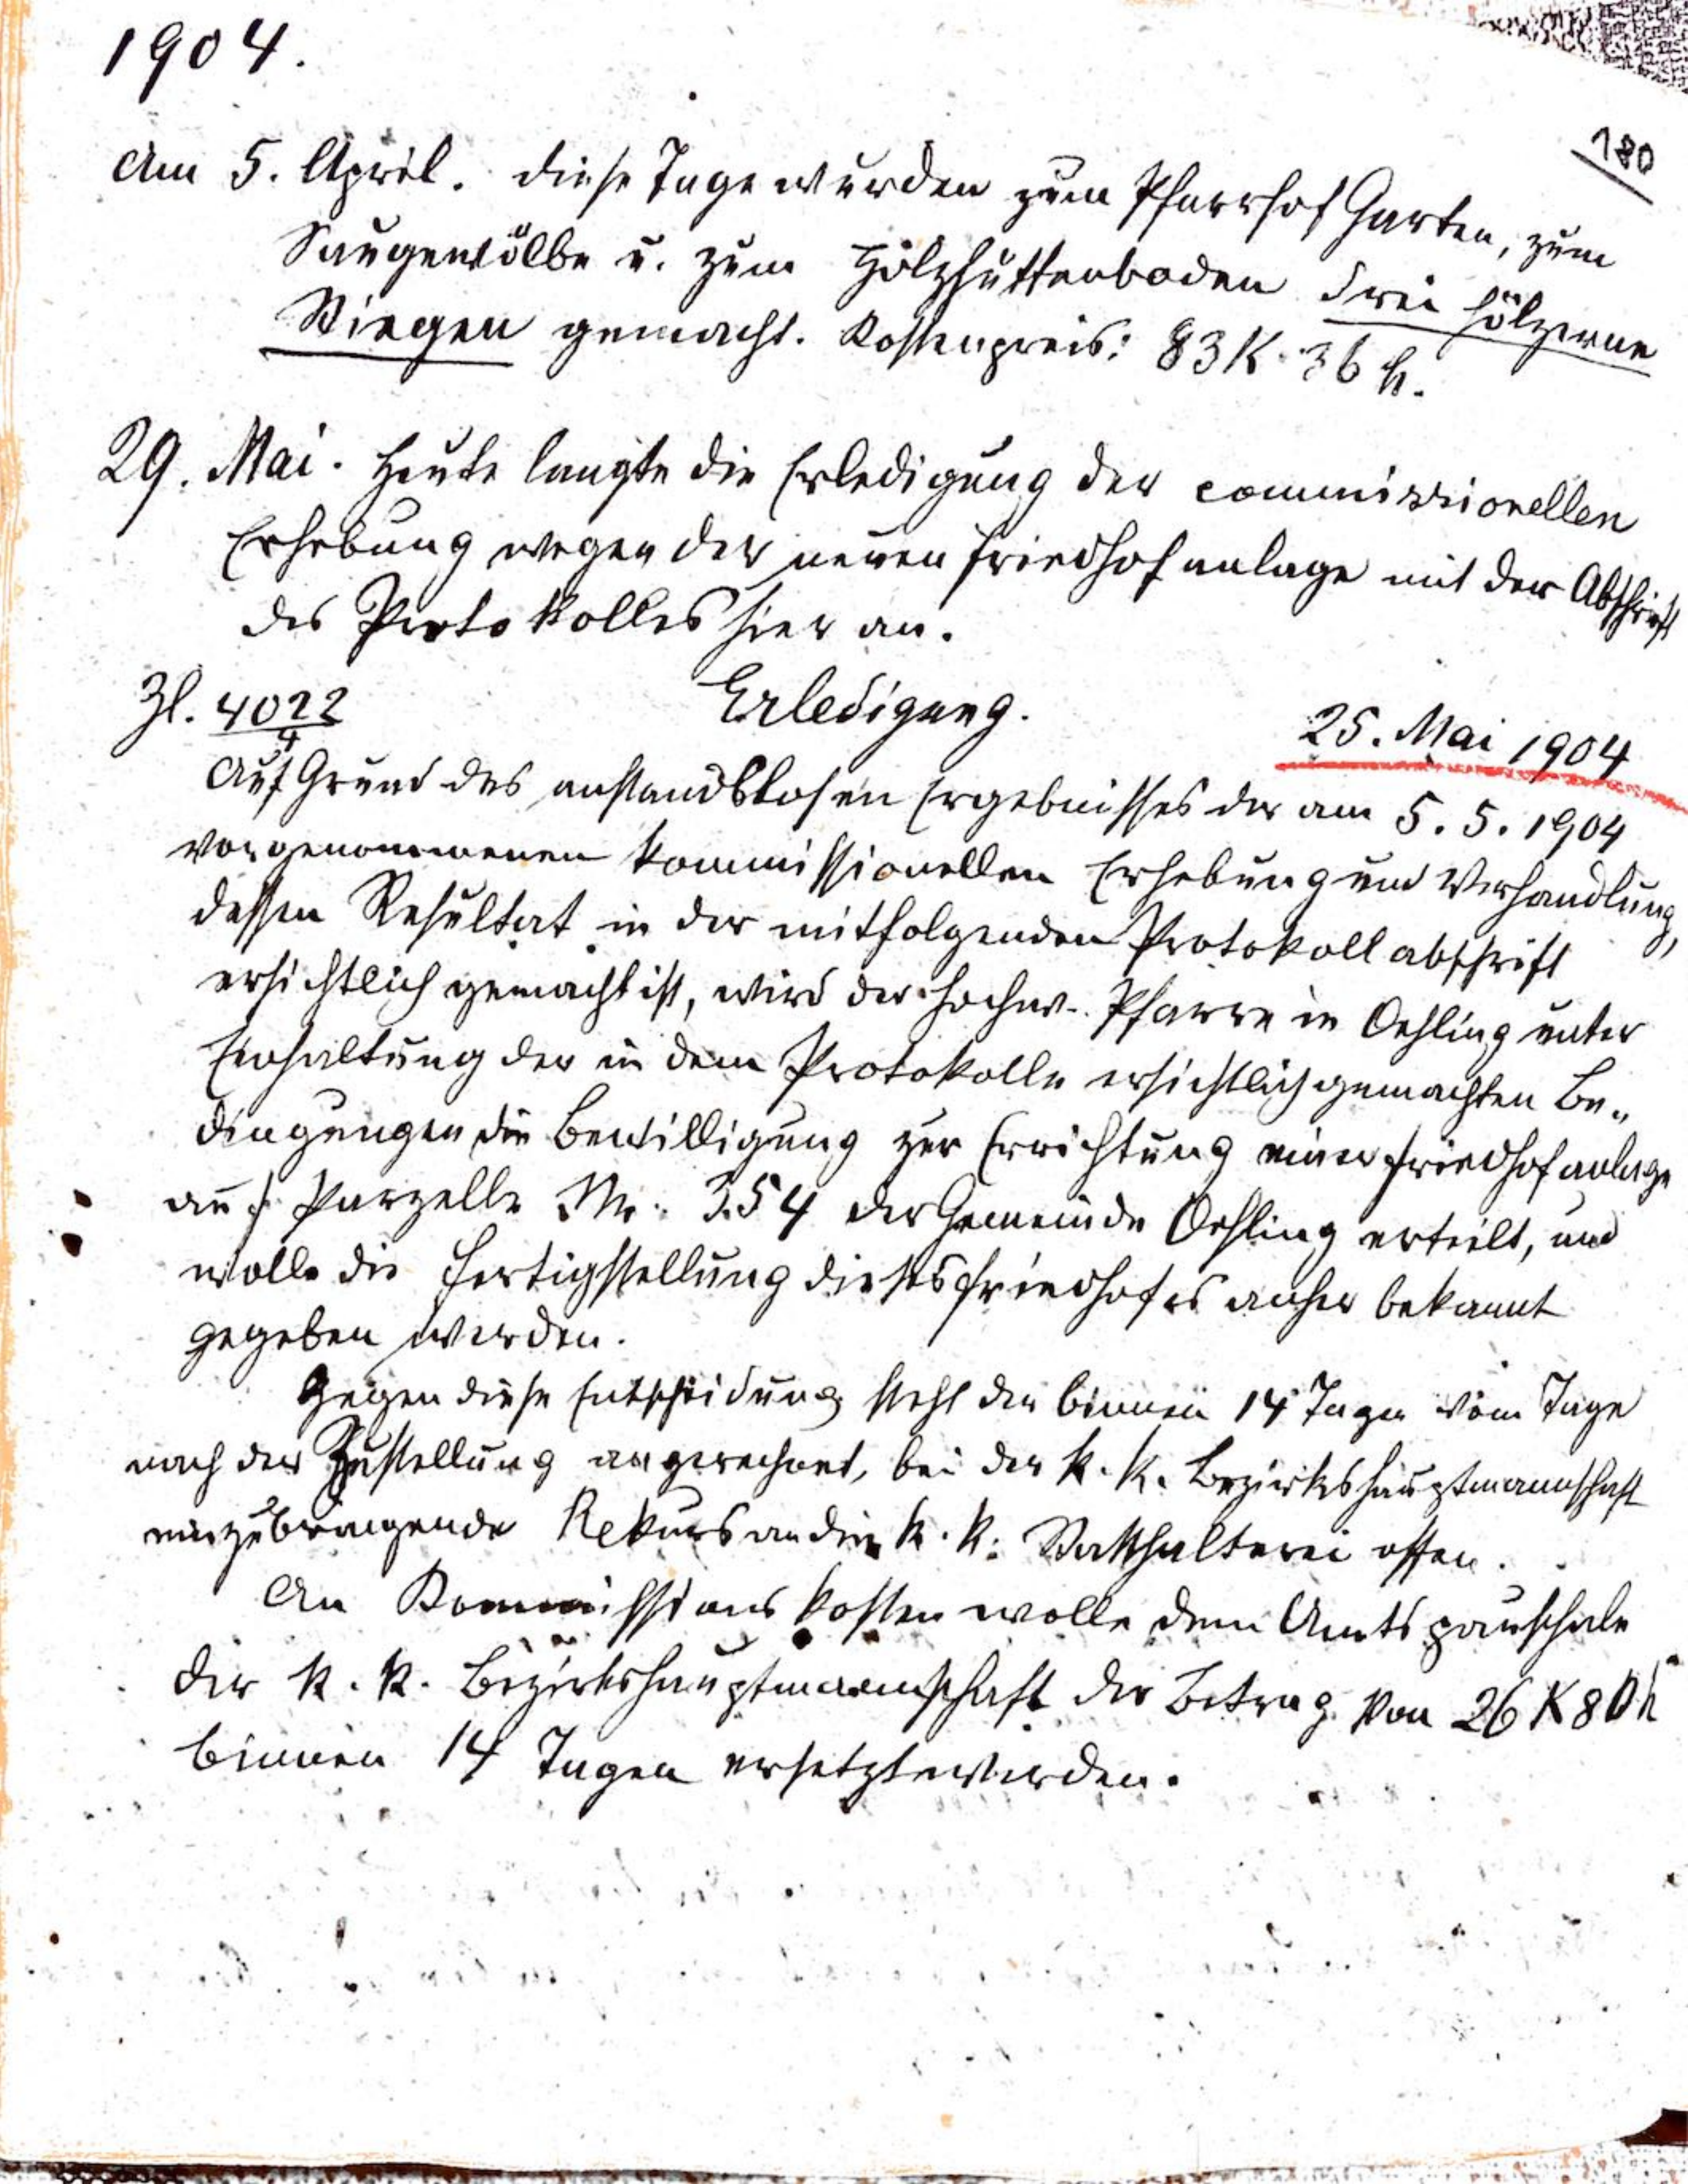 1904.
180
Am 5. April. Diese Tage wurden zum Pfarrhof Garten, zum
Saugewölbe u. zum Holzhüttenboden drei hölzerne
Stiegen gemacht. Kostenpreis: 83 K. 36 h.
29. Mai. Heute langte die Erledigung der commissionellen
Erhebung wegen der neuen Friedhofanlage mit der Abschrift
des Protokolles hier an.
Zl. 4022/4 Erledigung. 25. Mai 1904
Auf Grund des anstandslosen Ergebnisses der am 5. 5. 1904
vorgenommenen kommissionellen Erhebung und Verhandlung,
dessen Resultat in der mitfolgenden Protokollabschrift
ersichtlich gemacht ist, wird der hochw. Pfarre in Oehling unter
Einhaltung der in dem Protokolle ersichtlich gemachten Be„
dingungen die Bewilligung zur Errichtung einer Friedhofanlage
auf Parzelle Nr. 354 der Gemeinde Oehling erteilt, und
wolle die Fertigstellung dieses Friedhofes anher bekannt
gegeben werden.
Gegen diese Entscheidung steht der binnen 14 Tagen vom Tage
nach der Zustellung angerechnet, bei der k. k. Bezirkshauptmannschaft
einzubringende Rekurs an die k. k. Statthalterei offen.
An Kommissionskosten wolle dem Amtspauschale
der k. k. Bezirkshauptmannschaft der Betrag von 26 K 80 h
binnen 14 Tagen ersetzt werden.